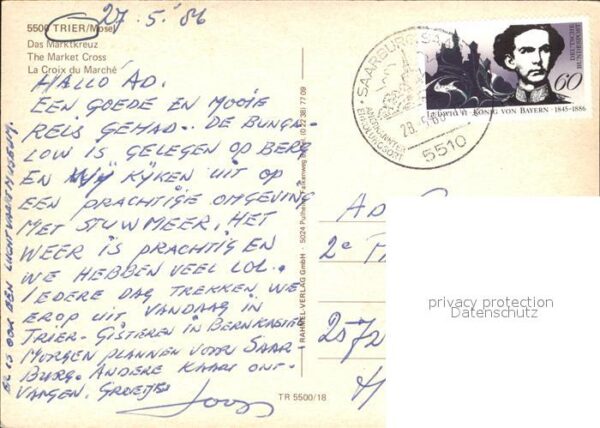 27-5-'86
5500 TRIER/Mosel
Das Marktkreuz
The Market Cross
La Croix du Marché
HALLO AD.
EEN GOEDE EN MOOIE
REIS GEMAD. DE BUNGA-
LOW IS GELEGEN OP BERG
EN KYKEN UIT OP
EEN PRACHTIGE OMGEVING
MET STUWMEER. HET
WEER IS PRACHTIG EN
WE HEBBEN VEEL LOL.
IEDERE DAG TREKKEN WE
EROP UIT VANDAAG IN
TRIER - GISTEREN IN BERNKASTEL
MORGEN PLANNEN VOOR SAAR
BURG. ANDERE KAART ONT-
VANGEN. GROETJES
ER IS OOK EEN LUCHTVAARTMUSEUM.
© RAHMEL-VERLAG GmbH · 5024 Pulheim
(0 22 38) 77 09
TR 5500/18
SAARBURG
ANERKANNTER
ERHOLUNGSORT
5510
DEUTSCHE
BUNDESPOST
60
Ludwig II. König von Bayern · 1845-1886
AD
2e
2572
privacy protection
Datenschutz